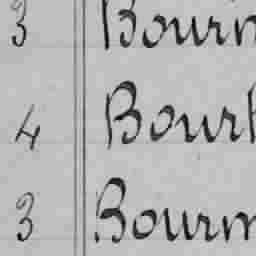 3 Bourn
4 Bourk
3 Bourn